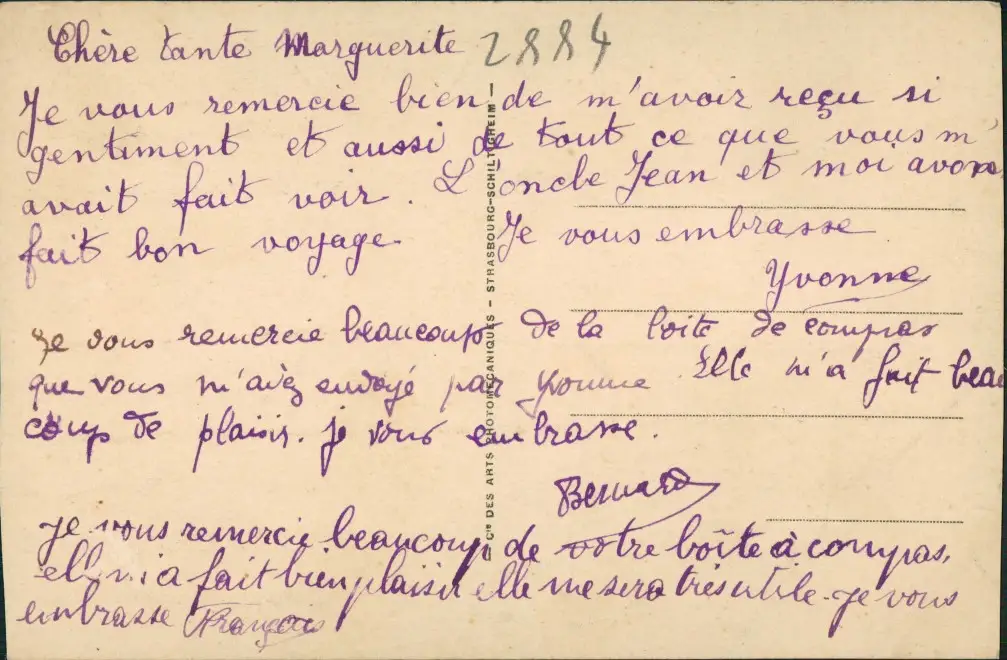 Chère tante Marguerite 2884
Je vous remercie bien de m'avoir reçu si
gentiment et aussi de tout ce que vous m'
avait fait voir. L'oncle Jean et moi avons
fait bon voyage. Je vous embrasse
Yvonne
Je vous remercie beaucoup de la boite de compas
que vous m'avez envoyé par Yvonne. Elle m'a fait beau
coup de plaisir. je vous embrasse.
Bernard
je vous remercie beaucoup de votre boîte à compas,
elle m'a fait bien plaisir elle me sera très utile. je vous
embrasse François
Cie DES ARTS PHOTOMECANIQUES - STRASBOURG-SCHILTIGHEIM -